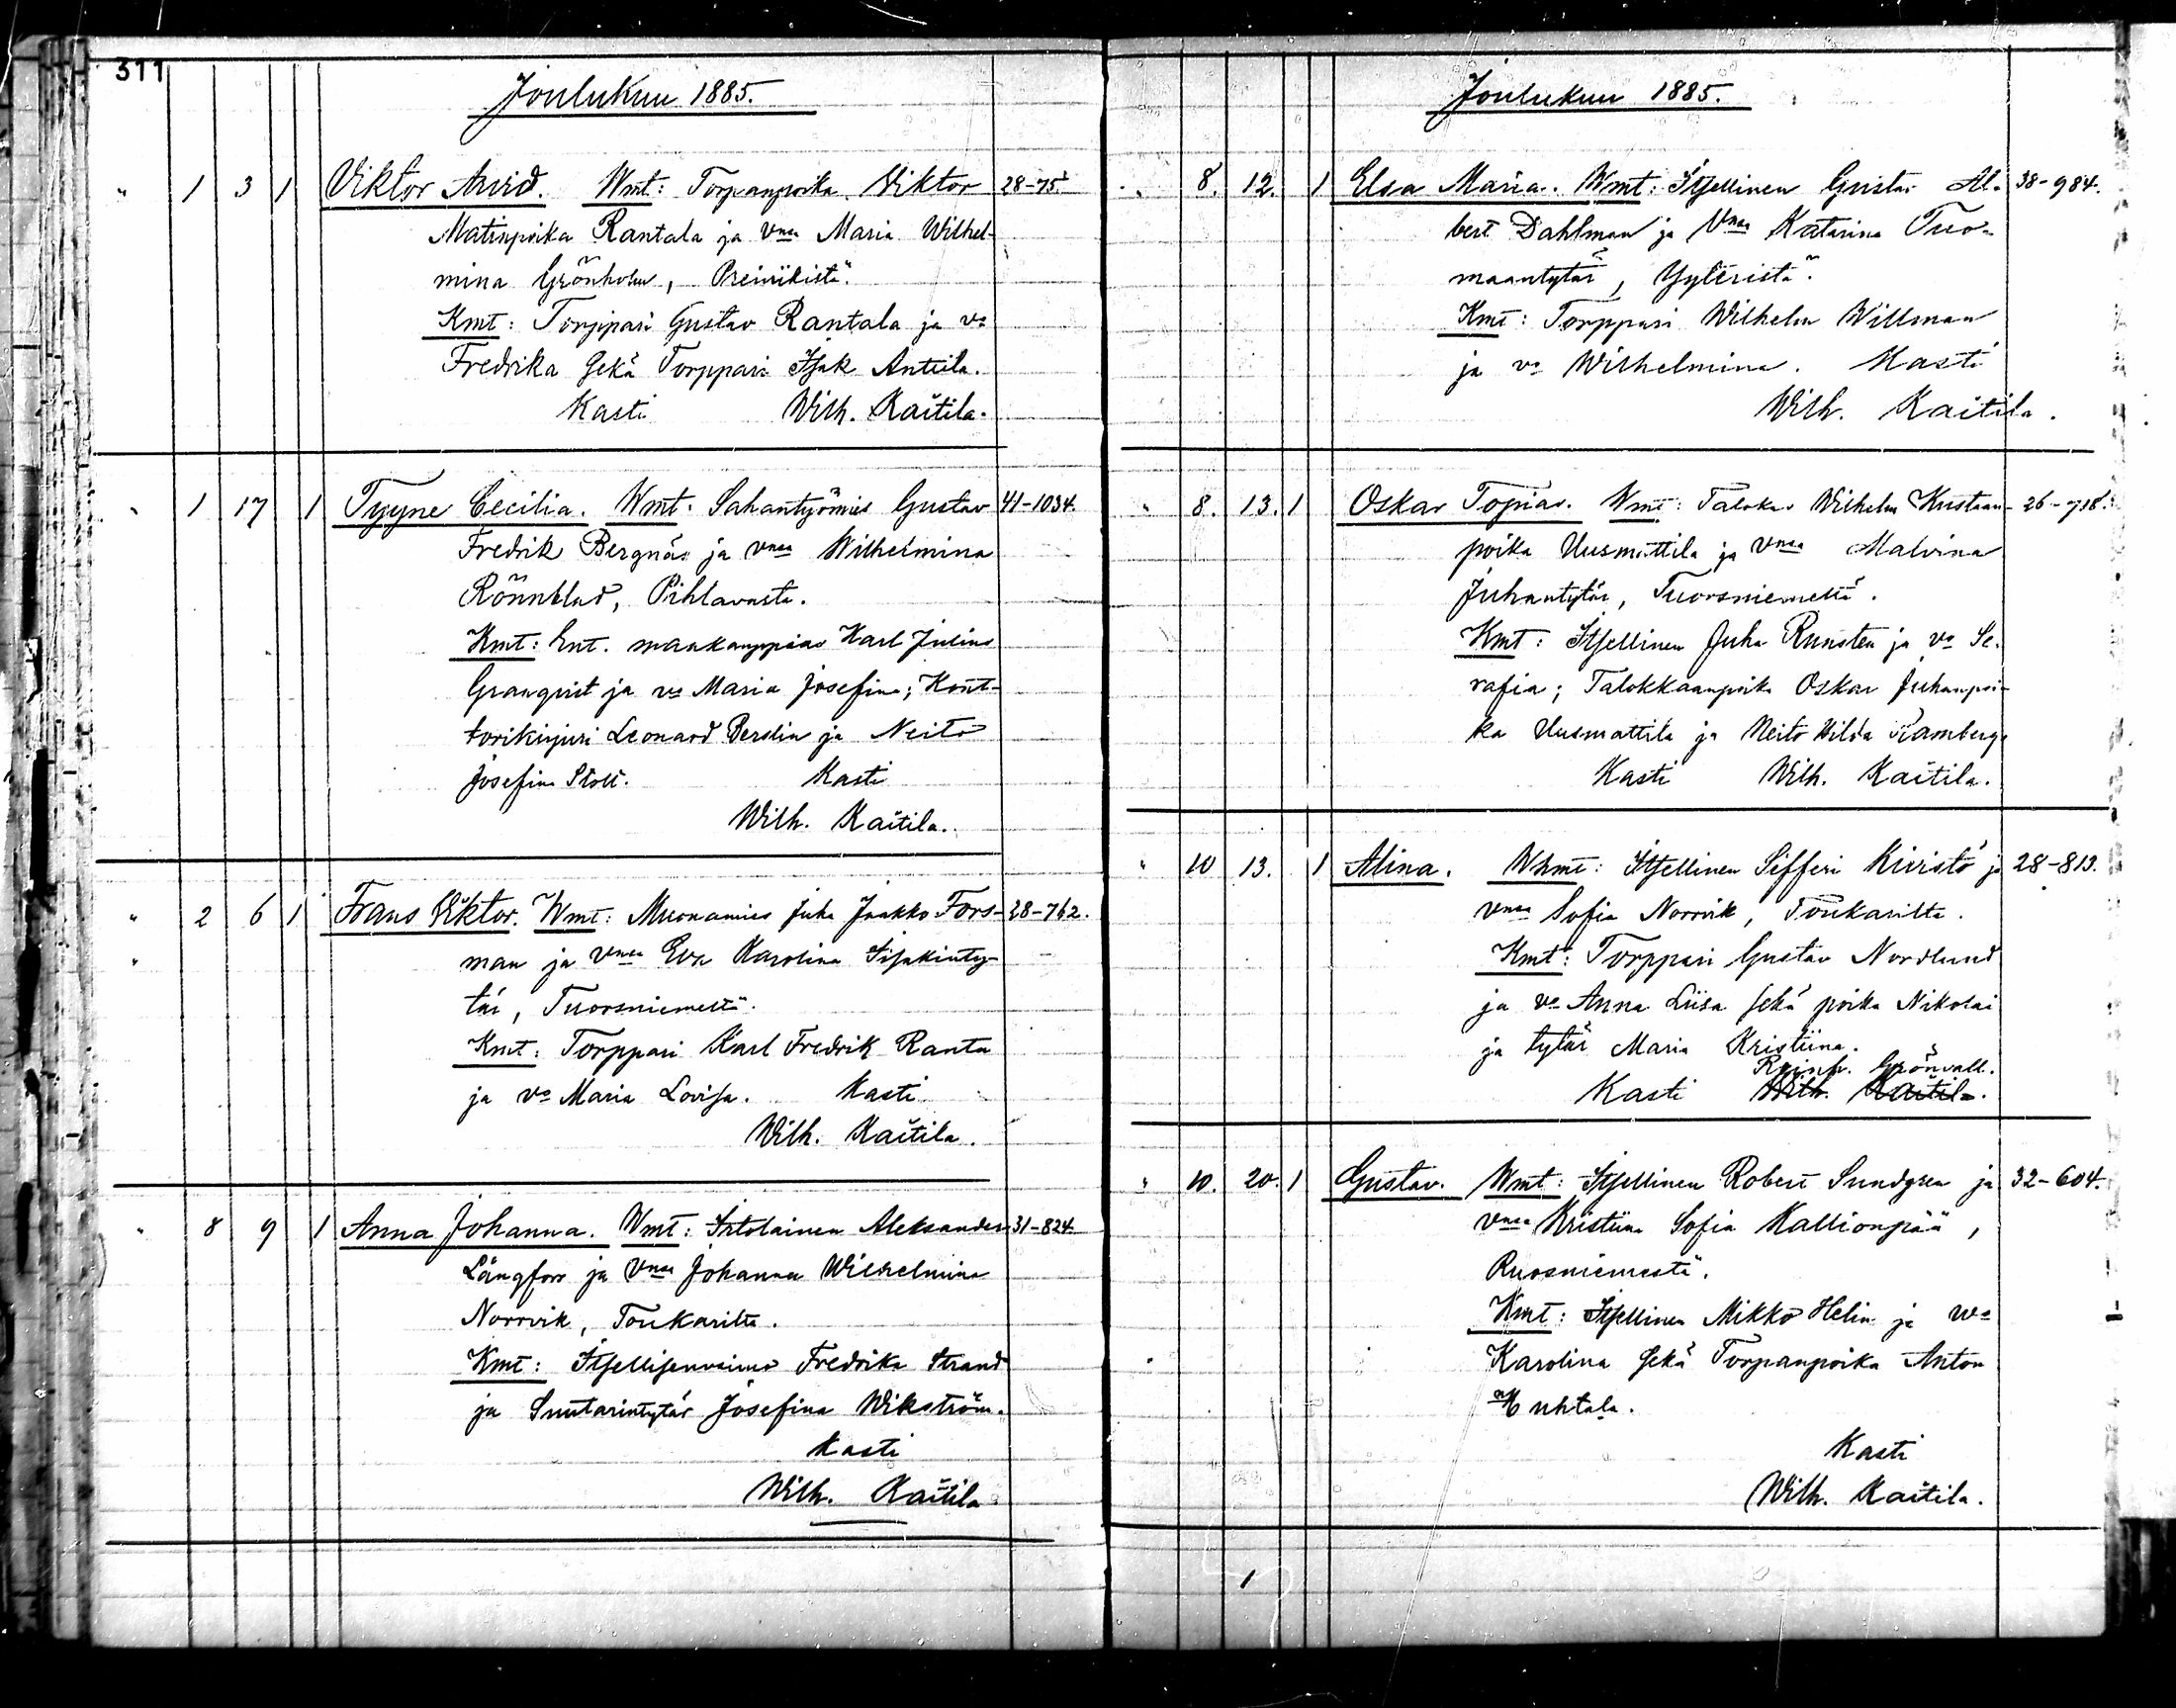 311
Joulukuu 1885.
" 1 3 1 Viktor Arvid. Wmt: Torpanpoika Viktor 28-75
Matinpoika Rantala ja Vmsa Maria Wilhel-
mina Grönholm, Preiviikistä.
Kmt: Torppari Gustav Rantala ja vo
Fredrika sekä Torppari Isak Anttila.
Kasti Wilh. Kaitila.
" 1 17 1 Tyyne Cecilia. Wmt. Sahantyömies Gustav 41-1034.
Fredrik Bergnäs ja vmsa Wilhelmina
Rönnblad, Pihlavasta.
Kmt: Ent. maakauppias Karl Julius
Granqvist ja vo Maria Josefina; Kont-
torikirjuri Leonard Berdlin ja Neito
Josefina Stolt. Kasti
Wilh. Kaitila.
" 2 6 1 Frans Viktor. Wmt: Muonamies Juha Jaakko Fors- 28-762.
" man ja Vmsa Eva Karolina Iisakinty-
tär, Tuorsniemeltä.
Kmt: Torppari Karl Fredrik Ranta
ja vo Maria Lovisa. Kasti
Wilh. Kaitila.
" 8 9 1 Anna Johanna. Wmt: Irtolainen Aleksander 31-824.
Långfors ja Vmsa Johanna Wilhelmina
Norrvik, Toukarilta.
Kmt: Itsellisenvaimo Fredrika Strand
ja Suutarintytär Josefina Wikström.
Kasti
Wilh. Kaitila
Joulukuu 1885.
" 8. 12. 1 Elsa Maria. Wmt: Itsellinen Gustav Al- 38-984.
bert Dahlman ja Vmsa Katarina Tuo-
maantytär, Yyteristä.
Kmt: Torppari Wilhelm Willman
ja vo Wilhelmina. Kasti
Wilh. Kaitila.
" 8. 13. 1 Oskar Topias. Wmt: Talokas Wilhelm Kustaan- 26-718.
poika Uusmattila ja Vmsa Malvina
Juhantytär, Tuorsniemeltä.
Kmt: Itsellinen Juha Runsten ja vo Se-
rafia; Talokkaanpoika Oskar Juhanpoi-
ka Uusmattila ja Neito Hilda Ramberg.
Kasti Wilh. Kaitila.
" 10 13. 1 Alina. Whmt: Itsellinen Sifferi Kivistö ja 28-813.
vmsa Sofia Norrvik, Toukarilta.
Kmt: Torppari Gustav Nordlund
ja vo Anna Liisa sekä poika Nikolai
ja tytär Maria Kristiina.
Reinh. Grönvall.
Kasti Wilh. Kaitila.
" 10. 20. 1 Gustav. Wmt: Itsellinen Robert Sundgren ja 32-604.
vmsa Kristiina Sofia Kallionpää,
Ruosniemestä.
Kmt: Itsellinen Mikko Helin ja wo
Karolina sekä Torpanpoika Anton
Huhtala.
Kasti
Wilh. Kaitila.